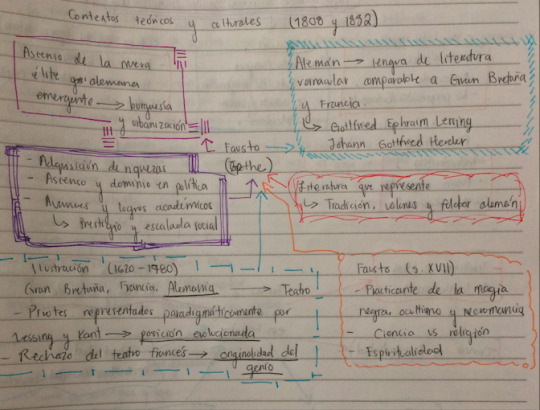 Contextos teóricos y culturales (1808 y 1832)
Ascenso de la nueva
élite alemana
emergente → burguesía
y urbanización
Alemán → lengua de literatura
vernacular comparable a Gran Bretaña
y Francia.
↳ Gottfried Ephraim Lessing
Johann Gottfried Herder
Fausto
(Goethe)
- Adquisición de riquezas
- Ascenso y dominio en política
- Avances y logros académicos
↳ Prestigio y escalada social
Literatura que represente
↳ Tradición, valores y folclor alemán
Ilustración (1620-1780)
Gran Bretaña, Francia, Alemania → Teatro
- Pivotes representados paradigmáticamente por
Lessing y Kant → posición evolucionada
- Rechazo del teatro francés → originalidad del
genio
Fausto (s. XVII)
- Practicante de la magia
negra, ocultismo y necromancia
- Ciencia vs religión
- Espiritualidad